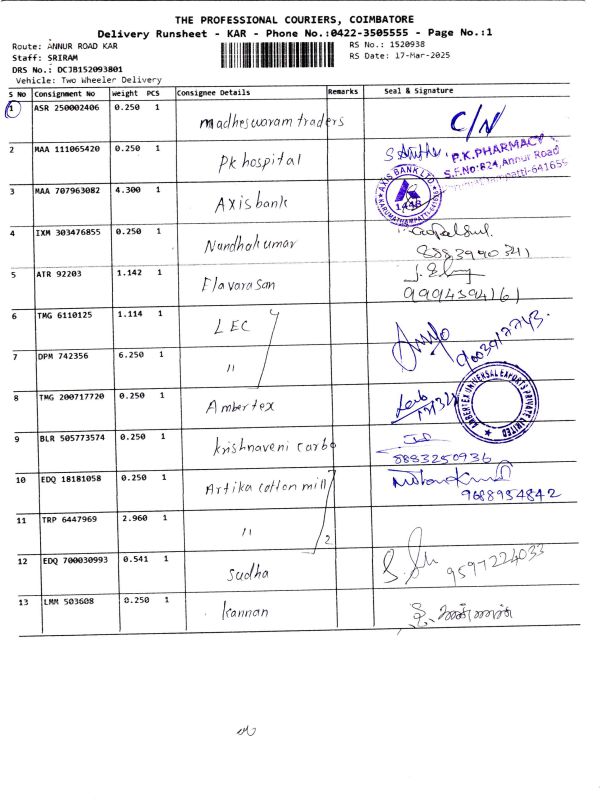 THE PROFESSIONAL COURIERS, COIMBATORE
Delivery Runsheet - KAR - Phone No.:0422-3505555 - Page No.:1
Route: ANNUR ROAD KAR
RS No.: 1520938
Staff: SRIRAM
RS Date: 17-Mar-2025
DRS No.: DCJB152093801
Vehicle: Two Wheeler Delivery
S No Consignment No Weight PCS Consignee Details Remarks Seal & Signature
1 ASR 250002406 0.250 1 madheswaram traders C/N
2 MAA 111065420 0.250 1 PK hospital P.K.PHARMACY
S.F.No-624, Annur Road
3 MAA 707963082 4.300 1 Axis bank AXIS BANK LTD 1448
4 IXM 303476855 0.250 1 Nundhakumar
8883990341
5 ATR 92203 1.142 1 Elavarasan
9994394161
6 TMG 6110125 1.114 1 LEC
7 DPM 742356 6.250 1 "
8 TMG 200717720 0.250 1 Ambertex AMBERTEX UNIVERSAL EXPORTS PRIVATE LIMITED
9 BLR 505773574 0.250 1 krishnaveni carbo
8883250936
10 EDQ 18181058 0.250 1 Artika cotton mill
9688954842
11 TRP 6447969 2.960 1 " 2
12 EDQ 700030993 0.541 1 sudha 9597224033
13 LMM 503608 0.250 1 kannan